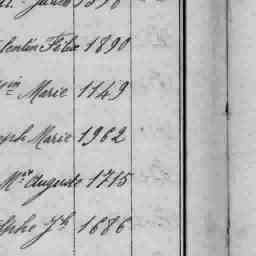 lentin Félix 1890
in Marie 1149
eph Marie 1962
Mie Auguste 1715
olphe Jh 1686